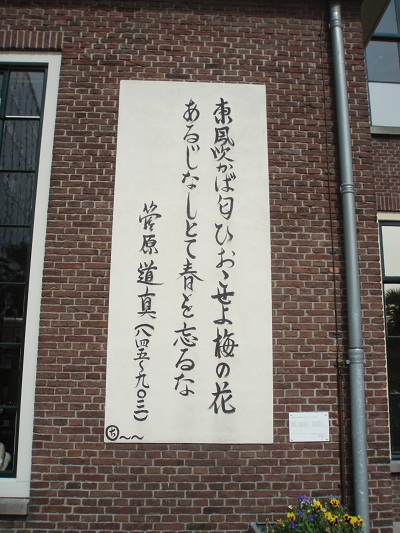 東風吹かば匂ひおこせよ梅の花
あるじなしとて春を忘るな
菅原道真(八四五〜九〇三)